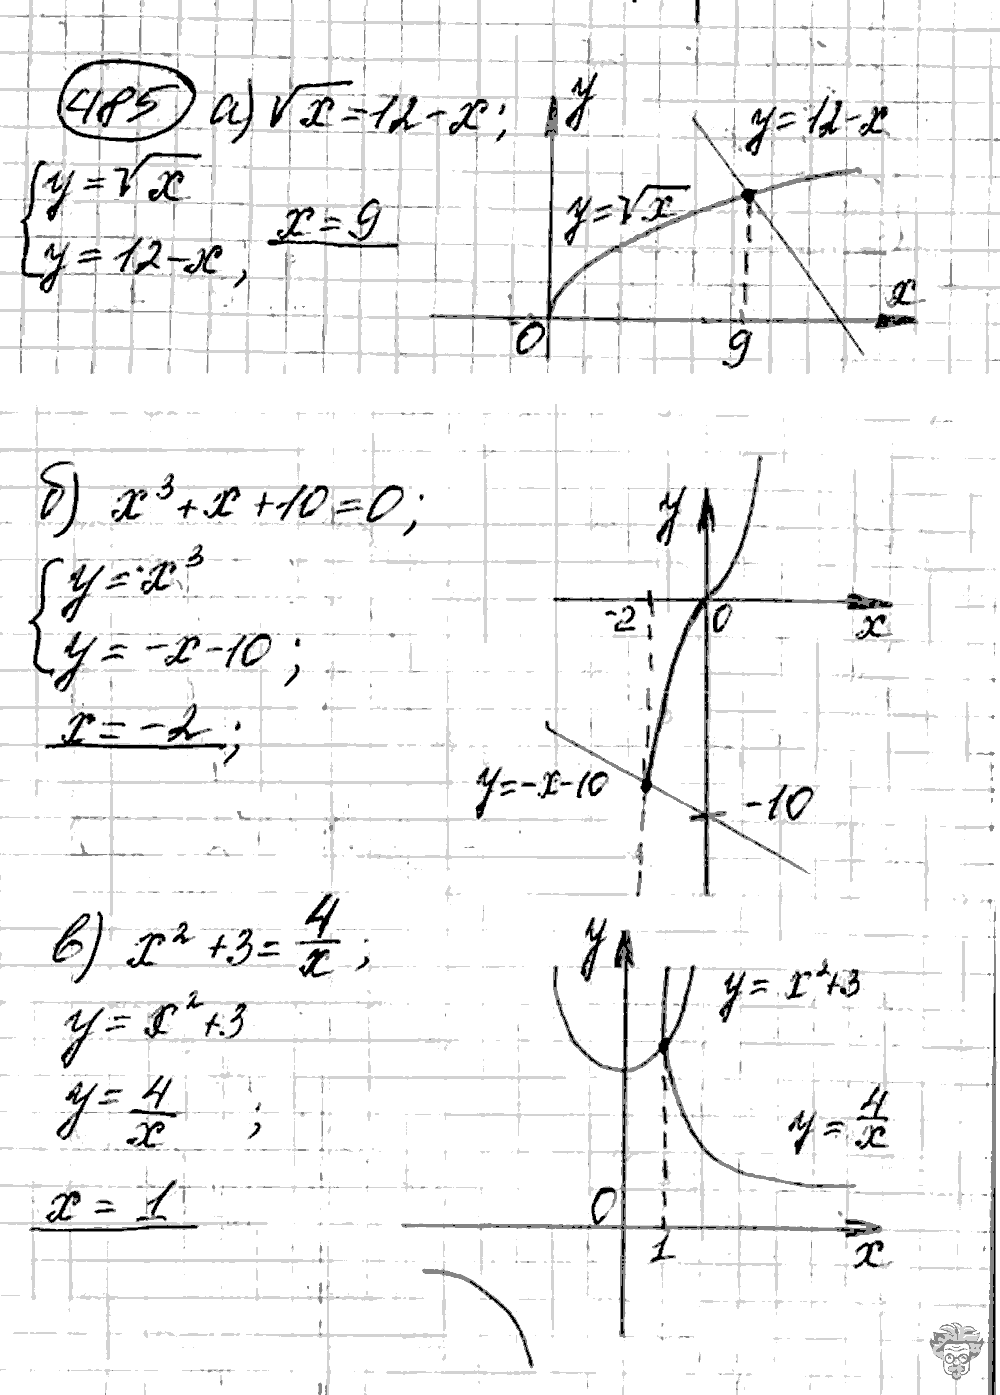 485 а) √x = 12 - x;
{ y = √x
y = 12 - x,
x = 9
y
y = 12 - x
y = √x
x
0
9
б) x³ + x + 10 = 0;
{ y = x³
y = -x - 10;
x = -2;
y
-2
0
x
y = -x - 10
-10
в) x² + 3 = 4/x;
y = x² + 3
y = 4/x;
x = 1
y
y = x² + 3
y = 4/x
0
1
x